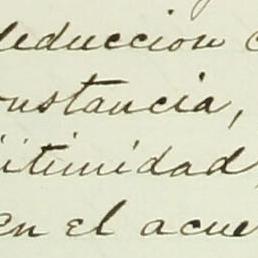 deduccion c
onstancia,
itimidad,
en el acue